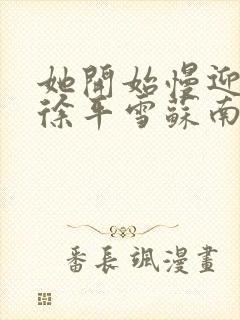 她開始慢迎
徐平雪蘇南
番長颯漫畫